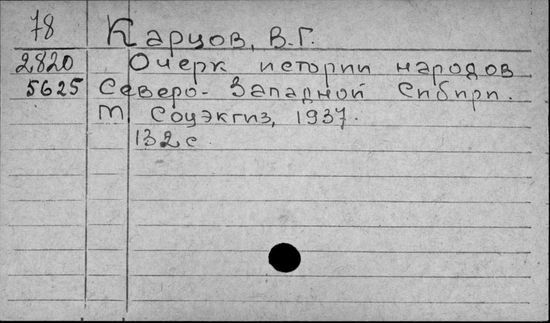 78 Карцов, В.Г.
2820 Очерк истории народов
5625 Северо-Западной Сибири.
М. Соцэкгиз, 1937.
132 с.